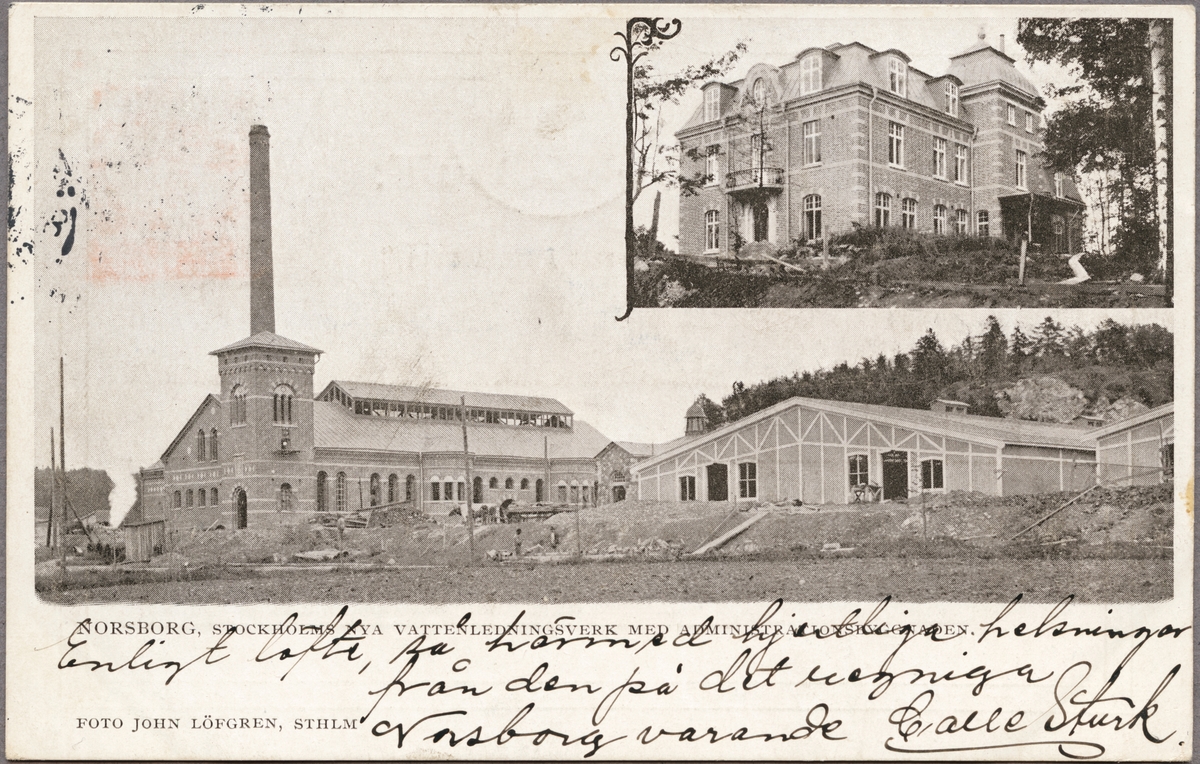 NORSBORG, STOCKHOLMS NYA VATTENLEDNINGSVERK MED ADMINISTRATIONSBYGGNADEN.
Enligt löfte, så härmed hjertliga helsningar
från den på det regniga
Norsborg varande Calle Sturk.
FOTO JOHN LÖFGREN, STHLM